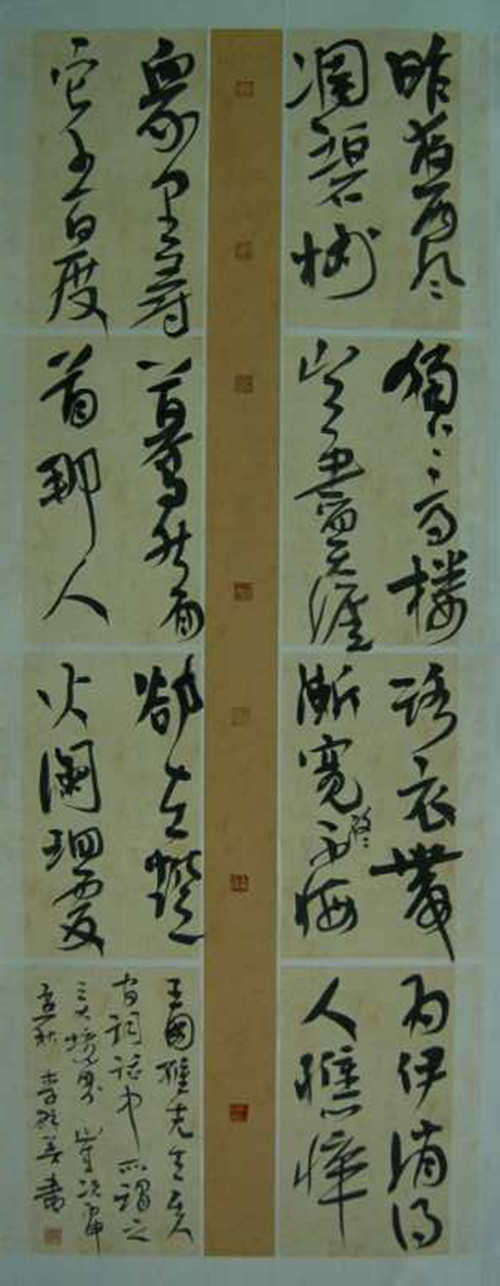 昨夜西风
凋碧树
獨上高樓
望盡天涯
路衣帶
漸寬終不悔
为伊消得
人憔悴
衆里尋
它千百度
驀然回
首那人
却在燈
火闌珊處
王國維先生人
间詞話中所謂之
三大境界
孟秋 李 美書